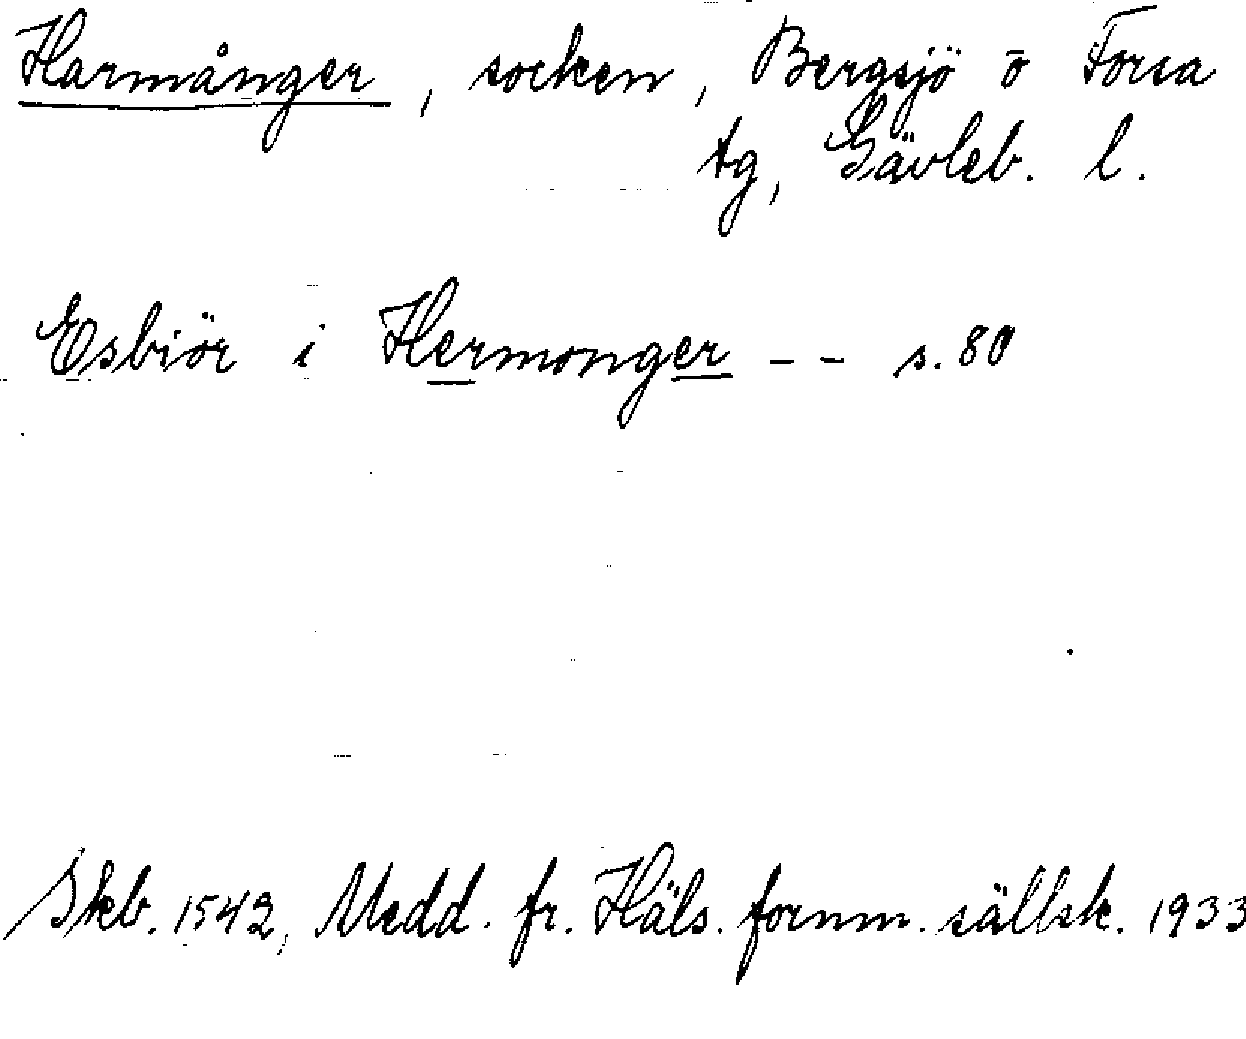 Harmånger, socken, Bergsjö o Forsa
tg, Gävleb. l.
Esbiör i Hermonger - - s. 80
Skb. 1542, Medd. fr. Häls. fornm. sällsk. 1933